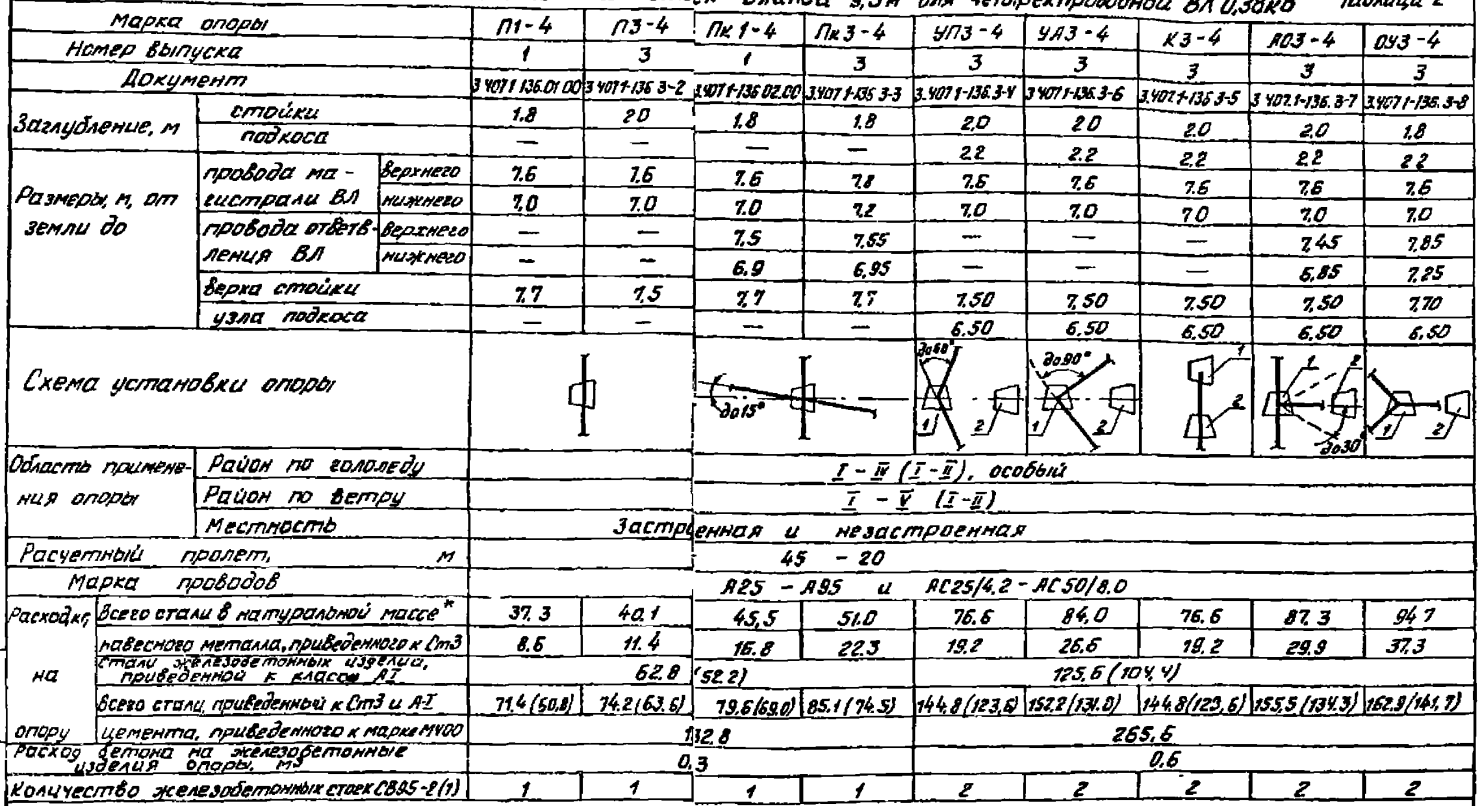 длиной 9,5м для четырехпроводной ВЛ 0,38кВ Таблица 2
Марка опоры П1-4 П3-4 Пк 1-4 Пк3-4 УП3-4 УА3-4 К3-4 АО3-4 ОУ3-4
Номер выпуска 1 3 1 3 3 3 3 3 3
Документ 3.407.1-136.01.00 3.407.1-136.3-2 3.407.1-136.02.00 3.407.1-136.3-3 3.407.1-136.3-4 3.407.1-136.3-6 3.407.1-136.3-5 3.407.1-136.3-7 3.407.1-136.3-8
Заглубление, м стойки 1.8 2.0 1.8 1.8 2.0 2.0 2.0 2.0 1.8
подкоса — — — — 2.2 2.2 2.2 2.2 2.2
Размеры, м, от земли до провода магистрали ВЛ верхнего 7.6 7.6 7.6 7.8 7.6 7.6 7.6 7.6 7.6
нижнего 7.0 7.0 7.0 7.2 7.0 7.0 7.0 7.0 7.0
провода ответвления ВЛ верхнего — — 7.5 7.55 — — — 7.45 7.85
нижнего — — 6.9 6.95 — — — 6.85 7.25
верха стойки 7.7 7.5 7.7 7.7 7.50 7.50 7.50 7.50 7.70
узла подкоса — — — — 6.50 6.50 6.50 6.50 6.50
Схема установки опоры до15° до60° 1 2 до90° 1 2 1 2 1 2 до30° 1 2
Область применения опоры Район по гололеду I - IV (I-II), особый
Район по ветру I - V (I-II)
Местность Застроенная и незастроенная
Расчетный пролет, м 45 - 20
Марка проводов А25 - А95 и АС25/4.2 - АС50/8.0
Расход, кг, на опору Всего стали в натуральной массе* 37.3 40.1 45,5 51.0 76.6 84,0 76.6 87.3 94.7
навесного металла, приведенного к Ст3 8.6 11.4 16.8 22.3 19.2 26.6 19.2 29.9 37.3
стали железобетонных изделий, приведенной к классу АI 62.8 (52.2) 125.6 (104,4)
всего стали, приведенной к Ст3 и А-I 71.4(60,8) 74.2(63.6) 79.6(69.0) 85.1(74.5) 144.8(123,6) 152.2(131.0) 144.8(123,6) 155,5(134.3) 162.9(141,7)
цемента, приведенного к марке М400 132.8 265,6
Расход бетона на железобетонные изделия опоры, м3 0.3 0,6
Количество железобетонных стоек СВ95-2(1) 1 1 1 1 2 2 2 2 2